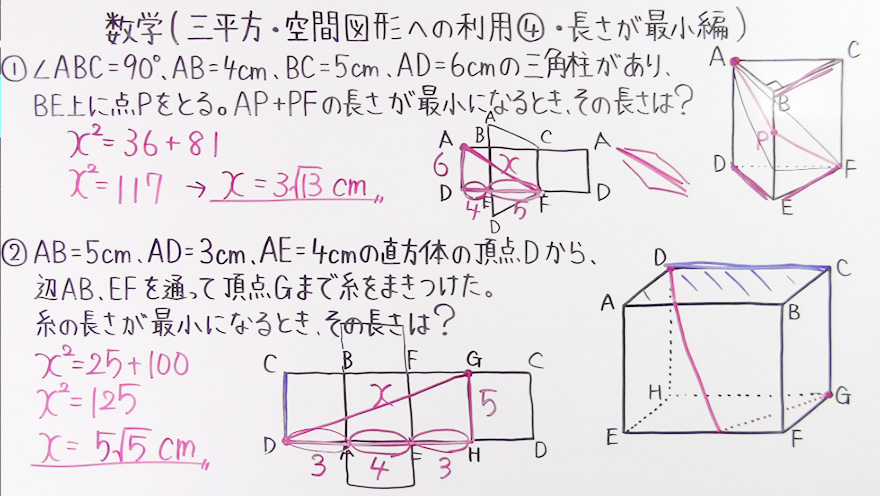 数学(三平方・空間図形への利用④・長さが最小編)
① ∠ABC=90°、AB=4cm、BC=5cm、AD=6cmの三角柱があり、
BE上に点Pをとる。AP+PFの長さが最小になるとき、その長さは?
x²=36+81
x²=117 → x=3√13 cm
A
A B C A
6 x
D E F D
4 5
D
A C
B
P
D F
E
② AB=5cm、AD=3cm、AE=4cmの直方体の頂点Dから、
辺AB、EFを通って頂点Gまで糸をまきつけた。
糸の長さが最小になるとき、その長さは?
x²=25+100
x²=125
x=5√5 cm
C B F G C
x 5
D A E H D
3 4 3
D C
A B
H G
E F